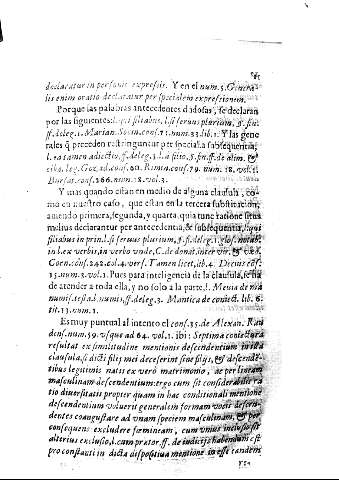 declaratur in personis expressis. Y en el num. 5. Genera-
lis enim oratio declaratur per specialem expressionem.
Porque las palabras antecedentes dudosas, se declaran
por las siguientes: l. qui filiabus, l. si seruus plurium, §. fin.
ff. de leg. 1. Marian. Socin. cons. 71. num. 33. lib. 1. Y las gene
rales q̃ preceden restringuntur per specialia subsequentia,
cons. 60. num. 79. num. 18. vol. 1.
cons. 266. num. 18. vol. 3.
Y mas quando estan en medio de alguna clausula, co-
mo en nuestro caso, que estan en la tercera substitucion,
auiendo primera, segunda, y quarta, quia tunc ratione situs
melius declarantur per antecedentia, & subsequentia, l. qui
filiabus in prin. l. si seruus plurium, §. fi. de leg. 1. glos. notab.
in l. ex verbis, in verbo vnde, C. de donat. inter vir. & vxo.
cons. 242. col. 4. vers. Tamen licet, lib. 4. Decius cons.
13. num. 3. vol. 1. Pues para inteligencia de la clausula, se ha
de atender a toda ella, y no solo a la parte, l. Meuia de ma
numis. de leg. 3. Mantica de coniect. lib. 6.
tit. 13. num. 1.
Es muy puntual al intento el cons. 35. de Alexan. Rau
dens. num. 59. vsque ad 64. vol. 1. ibi: Septima coniectura
resultat ex similitudine mentionis descendentium in ista
clausula, si dicti filij mei decesserint sine filijs, & descenden-
tibus legitimis natis ex vero matrimonio, ac per lineam
masculinam descendentium: ergo cum sit considerabilis ra
tio diuersitatis propter quam in hac conditionali mentione
descendentium voluerit generalem formam vocis descen-
dentes coangustare ad vnam speciem masculinam, & per
consequens excludere fœmineam, cum vnius inclusio sit
alterius exclusio, l. cum prætor. ff. de iudicijs habendum est
pro constanti in dicta dispositiua mentione in esse eandem